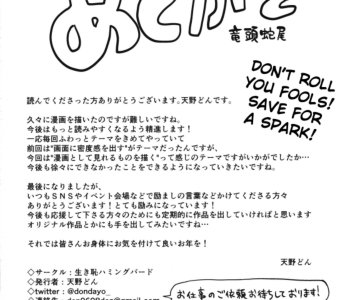 あとがき
竜頭蛇尾
DON'T ROLL
YOU FOOLS!
SAVE FOR
A SPARK!
読んでくださった方ありがとうございます。天野どんです。
久々に漫画を描いたのですが難しいですね。
今後はもっと読みやすくなるよう精進します！
一応毎回ふわっとテーマをきめてやってて
前回は"画面に密度感を出す"がテーマだったんですが、
今回は"漫画として見れるものを描く"って感じのテーマですがいかがでしたか…
今後も徐々にできなかったことをできるようになっていきたいですね。
最後になりましたが、
いつもＳＮＳやイベント会場などで励ましの言葉などかけてくださる方々
ありがとうございます！とても励みになっています！
今後も応援して下さる方々のためにも定期的に作品を出していければと思います
オリジナル作品とかにも手を出してみたいですね。
それでは皆さんお身体にお気を付けて良いお年を！
天野どん
◇サークル：生き恥ハミングバード
◇発行者：天野どん
◇twitter：@dondayo_
お仕事のご依頼お待ちしております！